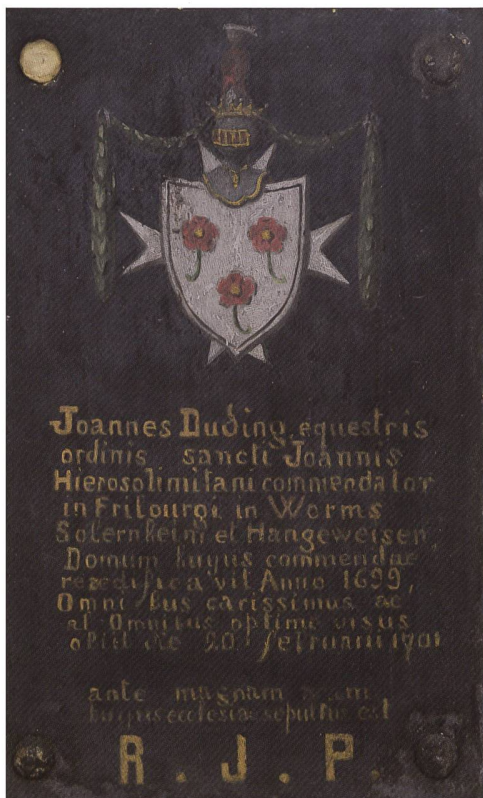 Joannes Duding equestris
ordinis sancti Joannis
Hierosolimitani commendator
in Fribourgi in Worms
Solernheim et Hangeweiser
Domum hujus commendae
reaedificavit Anno 1699,
Omnibus carissimus ac
ab Omnibus optime visus
obiit die 20 februarii 1701
ante magnam aram
hujus ecclesiae sepultus est
R. J. P.